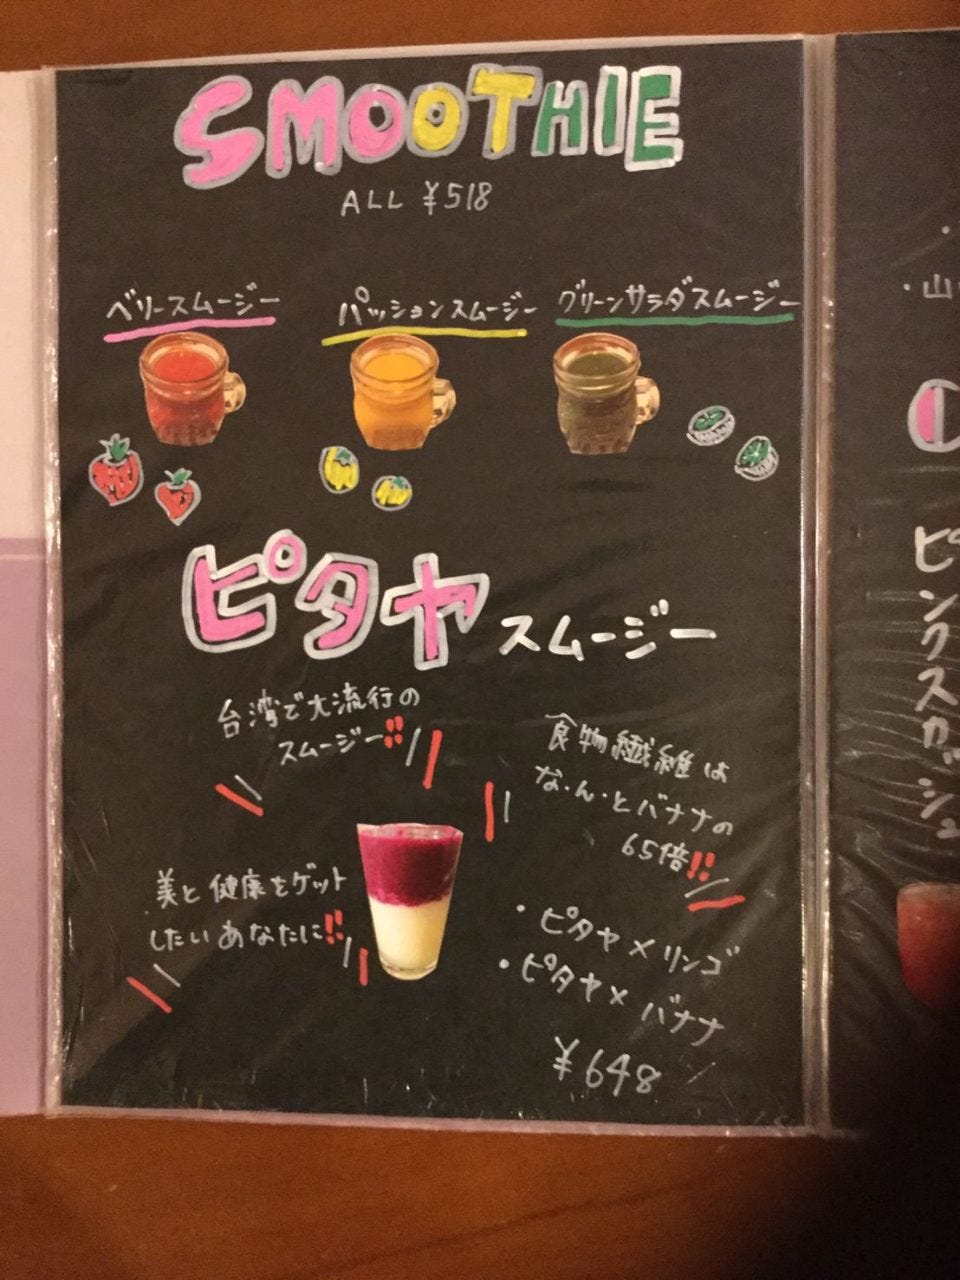 SMOOTHIE
ALL ¥518
ベリースムージー
パッションスムージー
グリーンサラダスムージー
ピタヤスムージー
台湾で大流行の
スムージー!!
食物繊維は
な・ん・とバナナの
65倍!!
美と健康をゲット
したいあなたに!!
・ピタヤ×リンゴ
・ピタヤ×バナナ
¥648
・山
ピンクスカッシュ